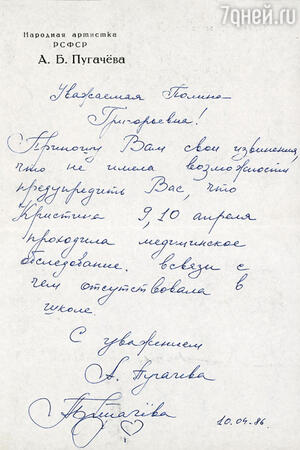 7дней.ru
Народная артистка
РСФСР
А. Б. Пугачёва
Уважаемая Полина
Григорьевна!
Приношу Вам свои извинения,
что не имела возможности
предупредить Вас, что
Кристина 9, 10 апреля
проходила медицинское
обследование. всвязи с
чем отсутствовала в
школе.
С уважением
А. Пугачева
10.04.86.